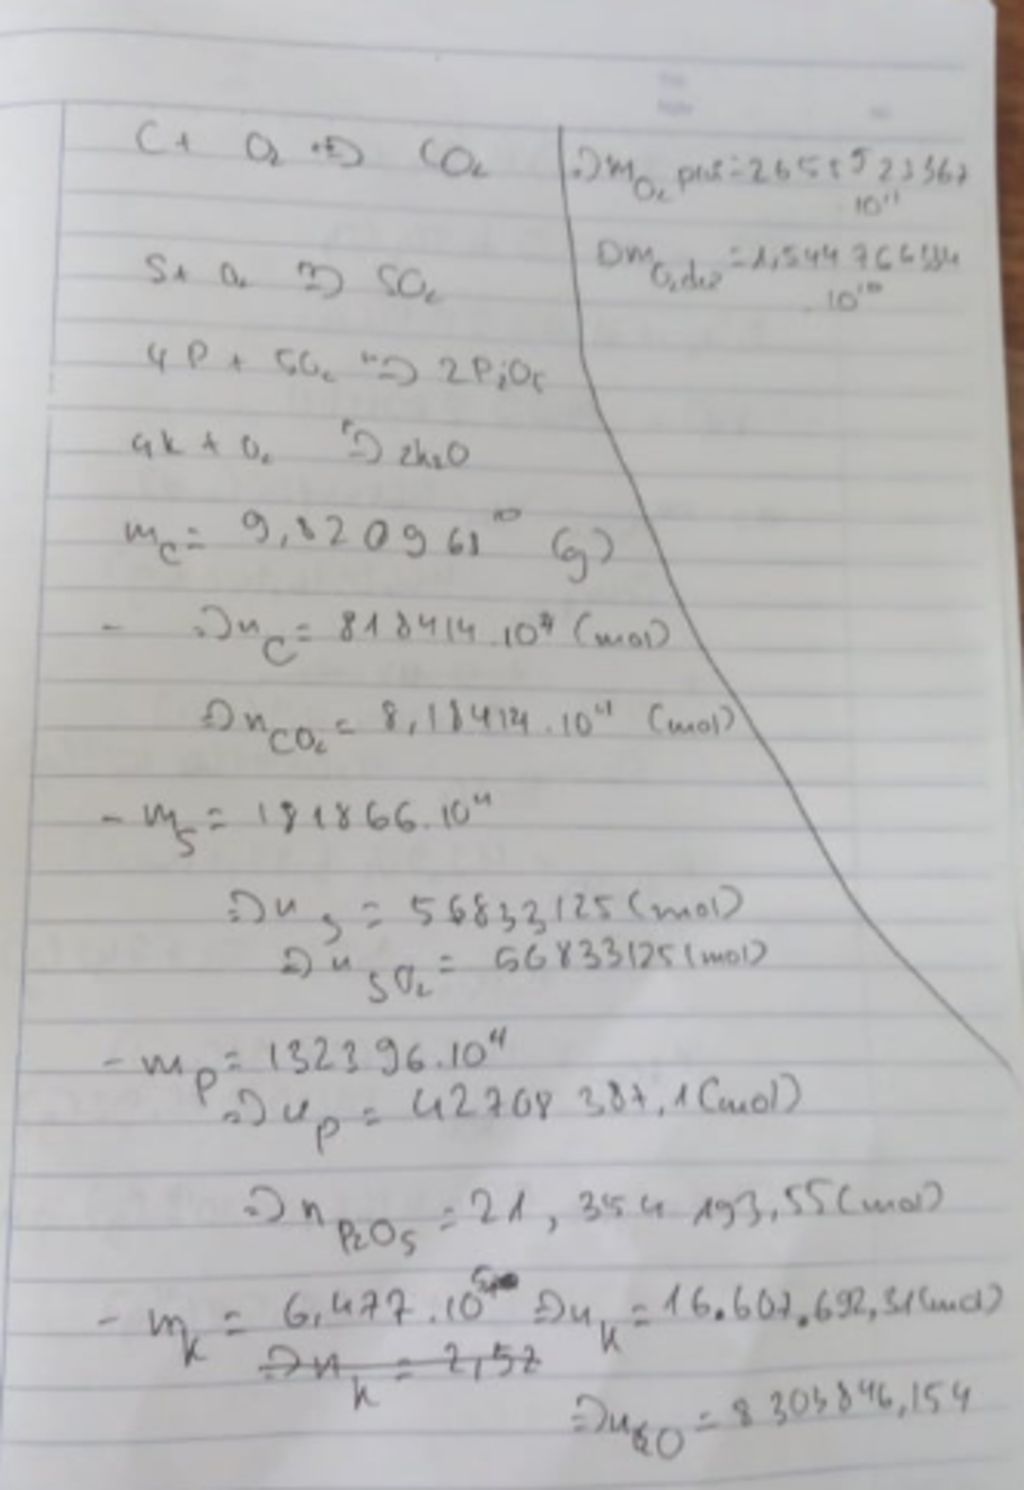 C + O₂ => CO₂
S + O₂ => SO₂
4P + 5O₂ => 2P₂O₅
4K + O₂ => 2K₂O
m_C = 9,82096 (g)
- => n_C = 818414.10⁴ (mol)
=> n_CO₂ = 8,18414.10⁴ (mol)
- m_S = 181866.10⁴
=> n_S = 56833125 (mol)
=> n_SO₂ = 56833125 (mol)
- m_P = 132396.10⁴
=> n_P = 42708 387,1 (mol)
=> n_P₂O₅ = 21, 354 193,55 (mol)
- m_K = 6,477.10 => n_K = 16.607.692,31 (mol)
=> n_K = 2,52
=> n_K₂O = 8 303846,154
=> m_O₂
=> m_O₂ = 1,544 10¹⁰